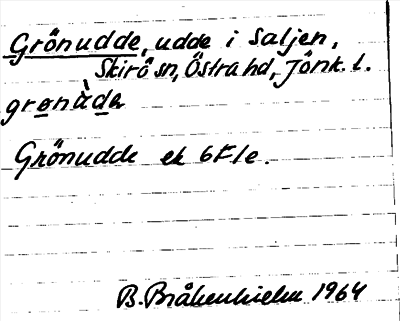 Grönudde, udde i Saljen,
Skirö sn, Östra hd, Jönk. l.
Grönudde ek 6F1e.
B. Bråkenhielm 1964